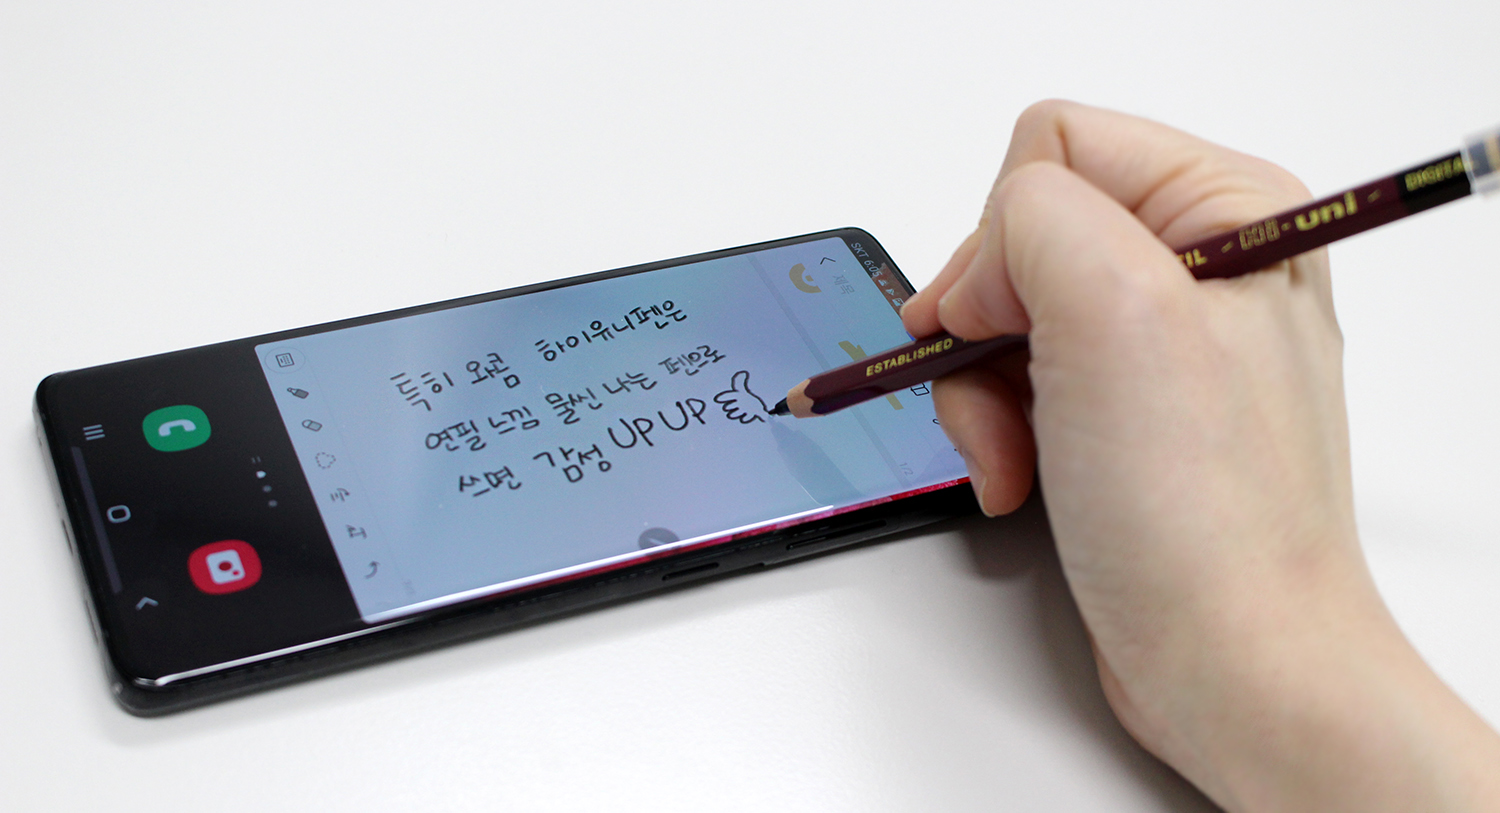 특히 와콤 하이유니펜은
연필 느낌 물씬 나는 펜으로
쓰면 감성 UP UP
SKT 6:05
제목
1/2
ESTABLISHED
CIL - Hi-uni - DIGITAL